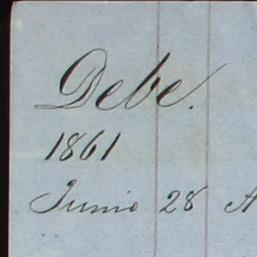 Debe.
1861
Junio 28 A